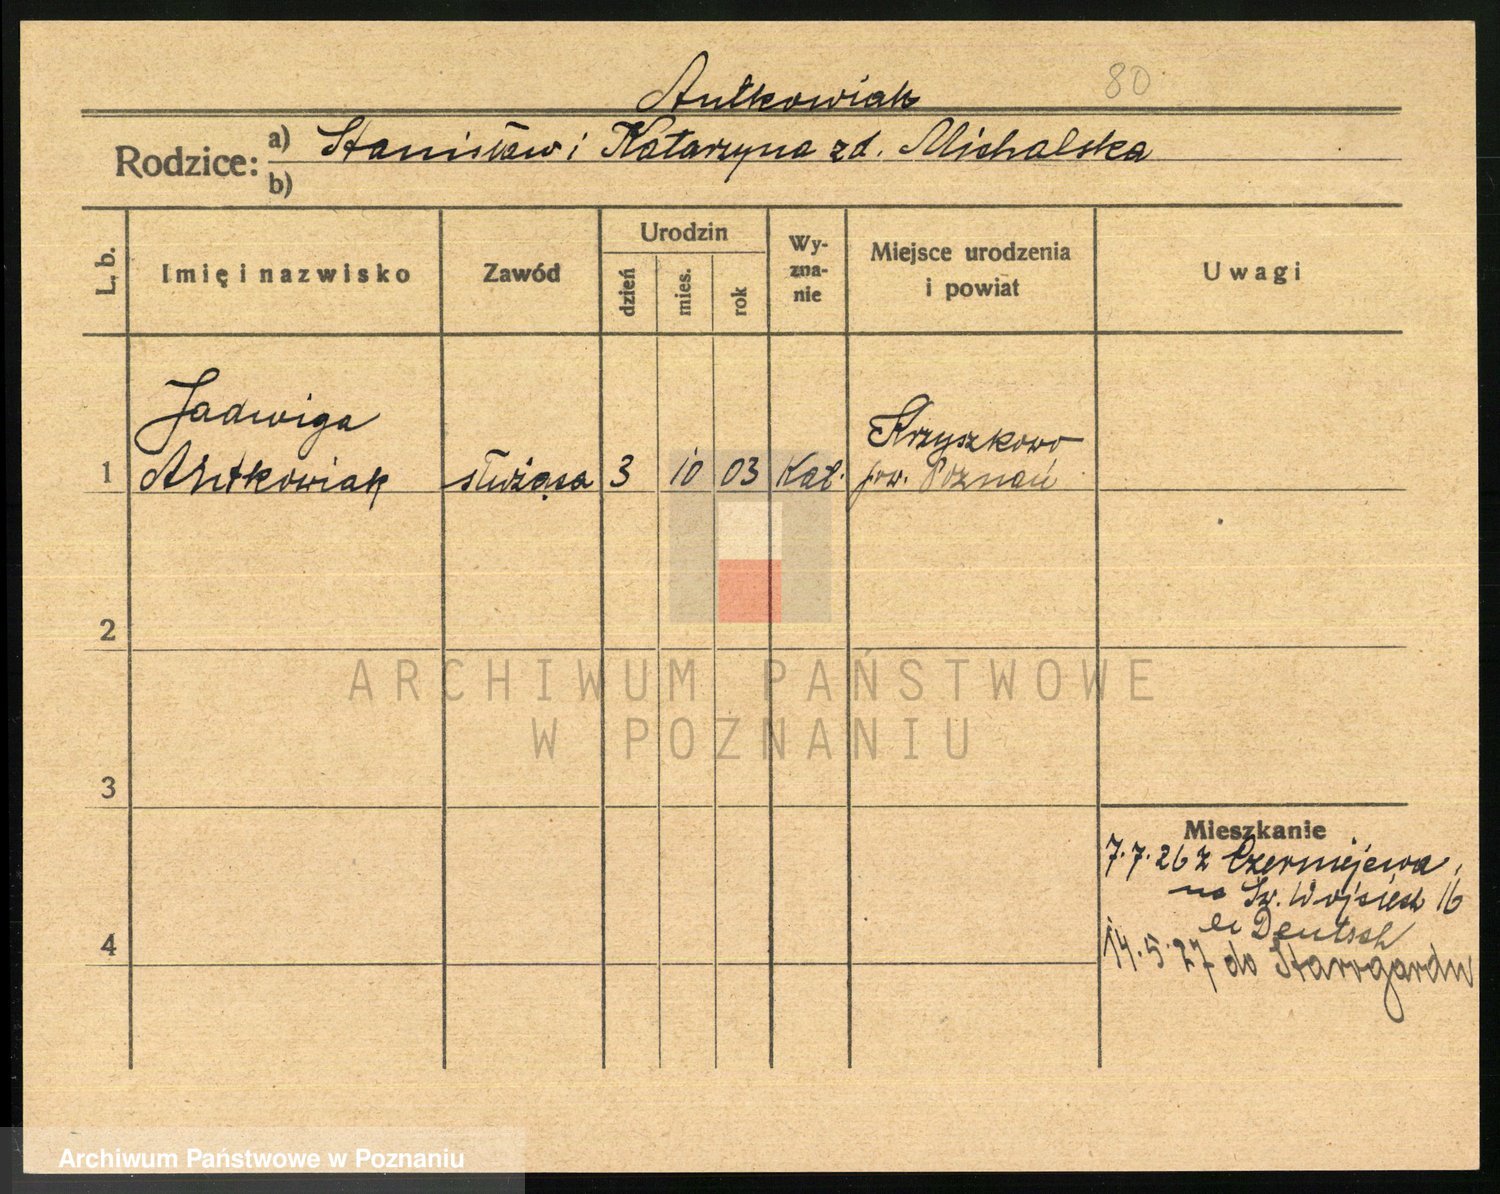 Antkowiak 80
Rodzice: a) Stanisław i Katarzyna zd. Michalska
b)
L. b.
Imię i nazwisko
Zawód
Urodzin
dzień
mies.
rok
Wy-
zna-
nie
Miejsce urodzenia
i powiat
Uwagi
Jadwiga
1 Antkowiak służąca 3 10 03 Kat.
Krzyszkowo
pow. Poznań
2
3
4
Mieszkanie
7.7.26 z Czerniejewa
na Św. Wojciech 16
Deutsch
14.5.27 do Starogardu
ARCHIWUM PAŃSTWOWE
W POZNANIU
Archiwum Państwowe w Poznaniu